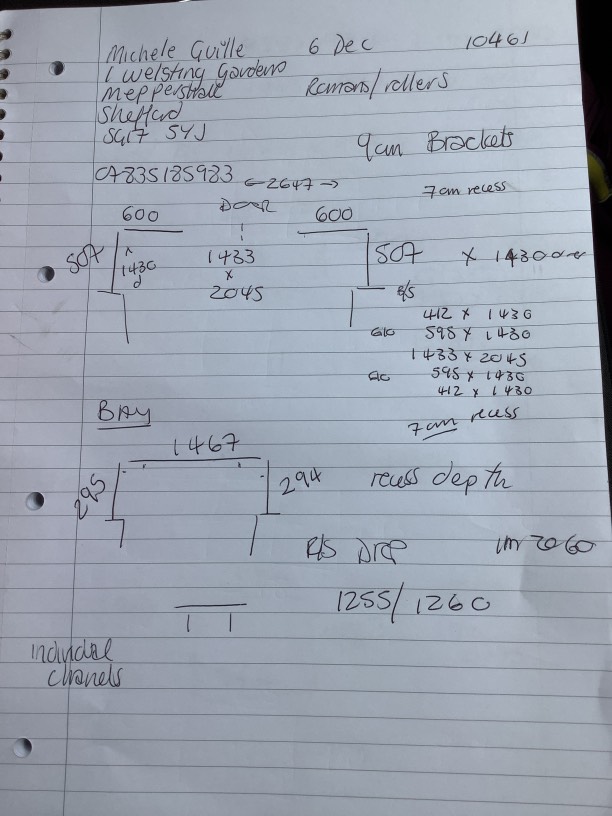 Michele Guille 6 Dec 10461
1 Welsting Gardens
Meppershall Romans/rollers
Shefford
SG17 5YJ
9cm Brackets
07835185933 ←2647→
7cm recess
600 DOOR 600
507 1430 d 1433 x 2045 507 x 1430
R/S
412 x 1430
598 x 1430
1433 x 2045
595 x 1430
412 x 1430
7cm recess
BAY
1467
295 294 recess depth
R/S Drop
1255/1260
individual
channels